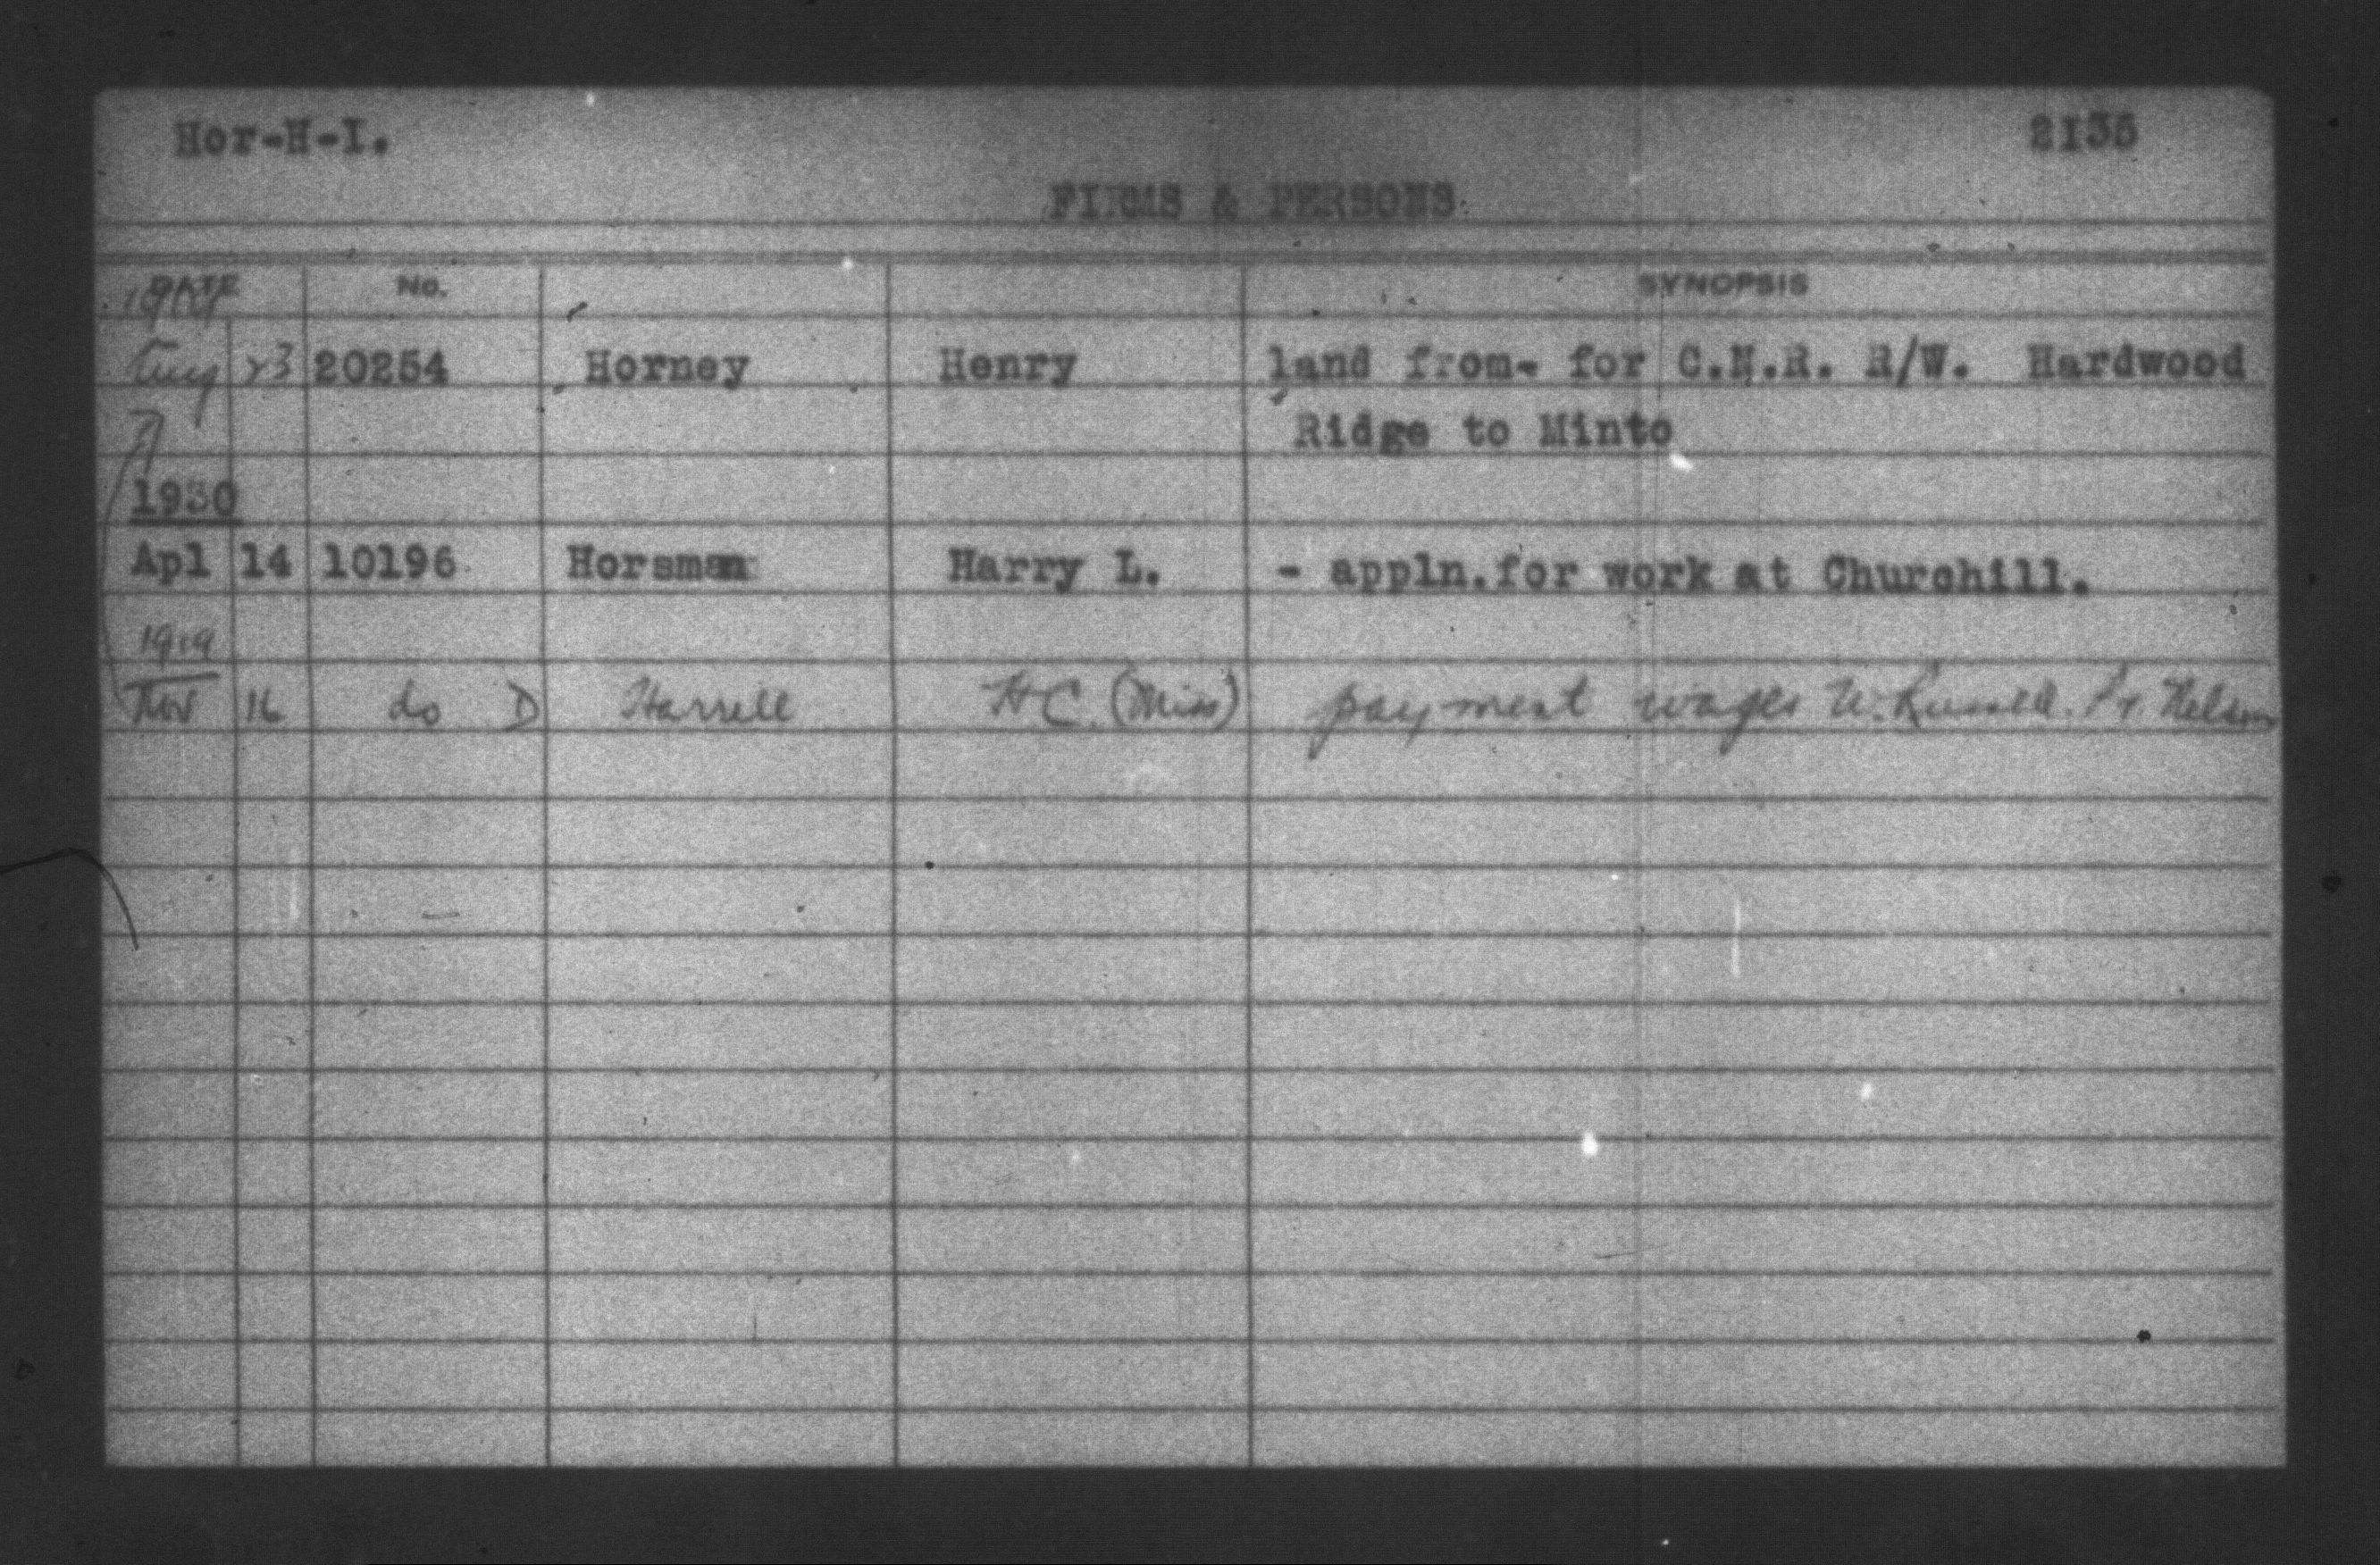 Hor-H-I. 2135
FIRMS & PERSONS
DATE No. SYNOPSIS
Aug 23 20254 Horney Henry land from- for C.N.R. R/W. Hardwood
Ridge to Minto
1930
Apl 14 10196 Horsman Harry L. - appln.for work at Churchill.
1919
Nov 16 do D Harrell H C. (Miss) payment wages W. Russell. Pt. Nelson